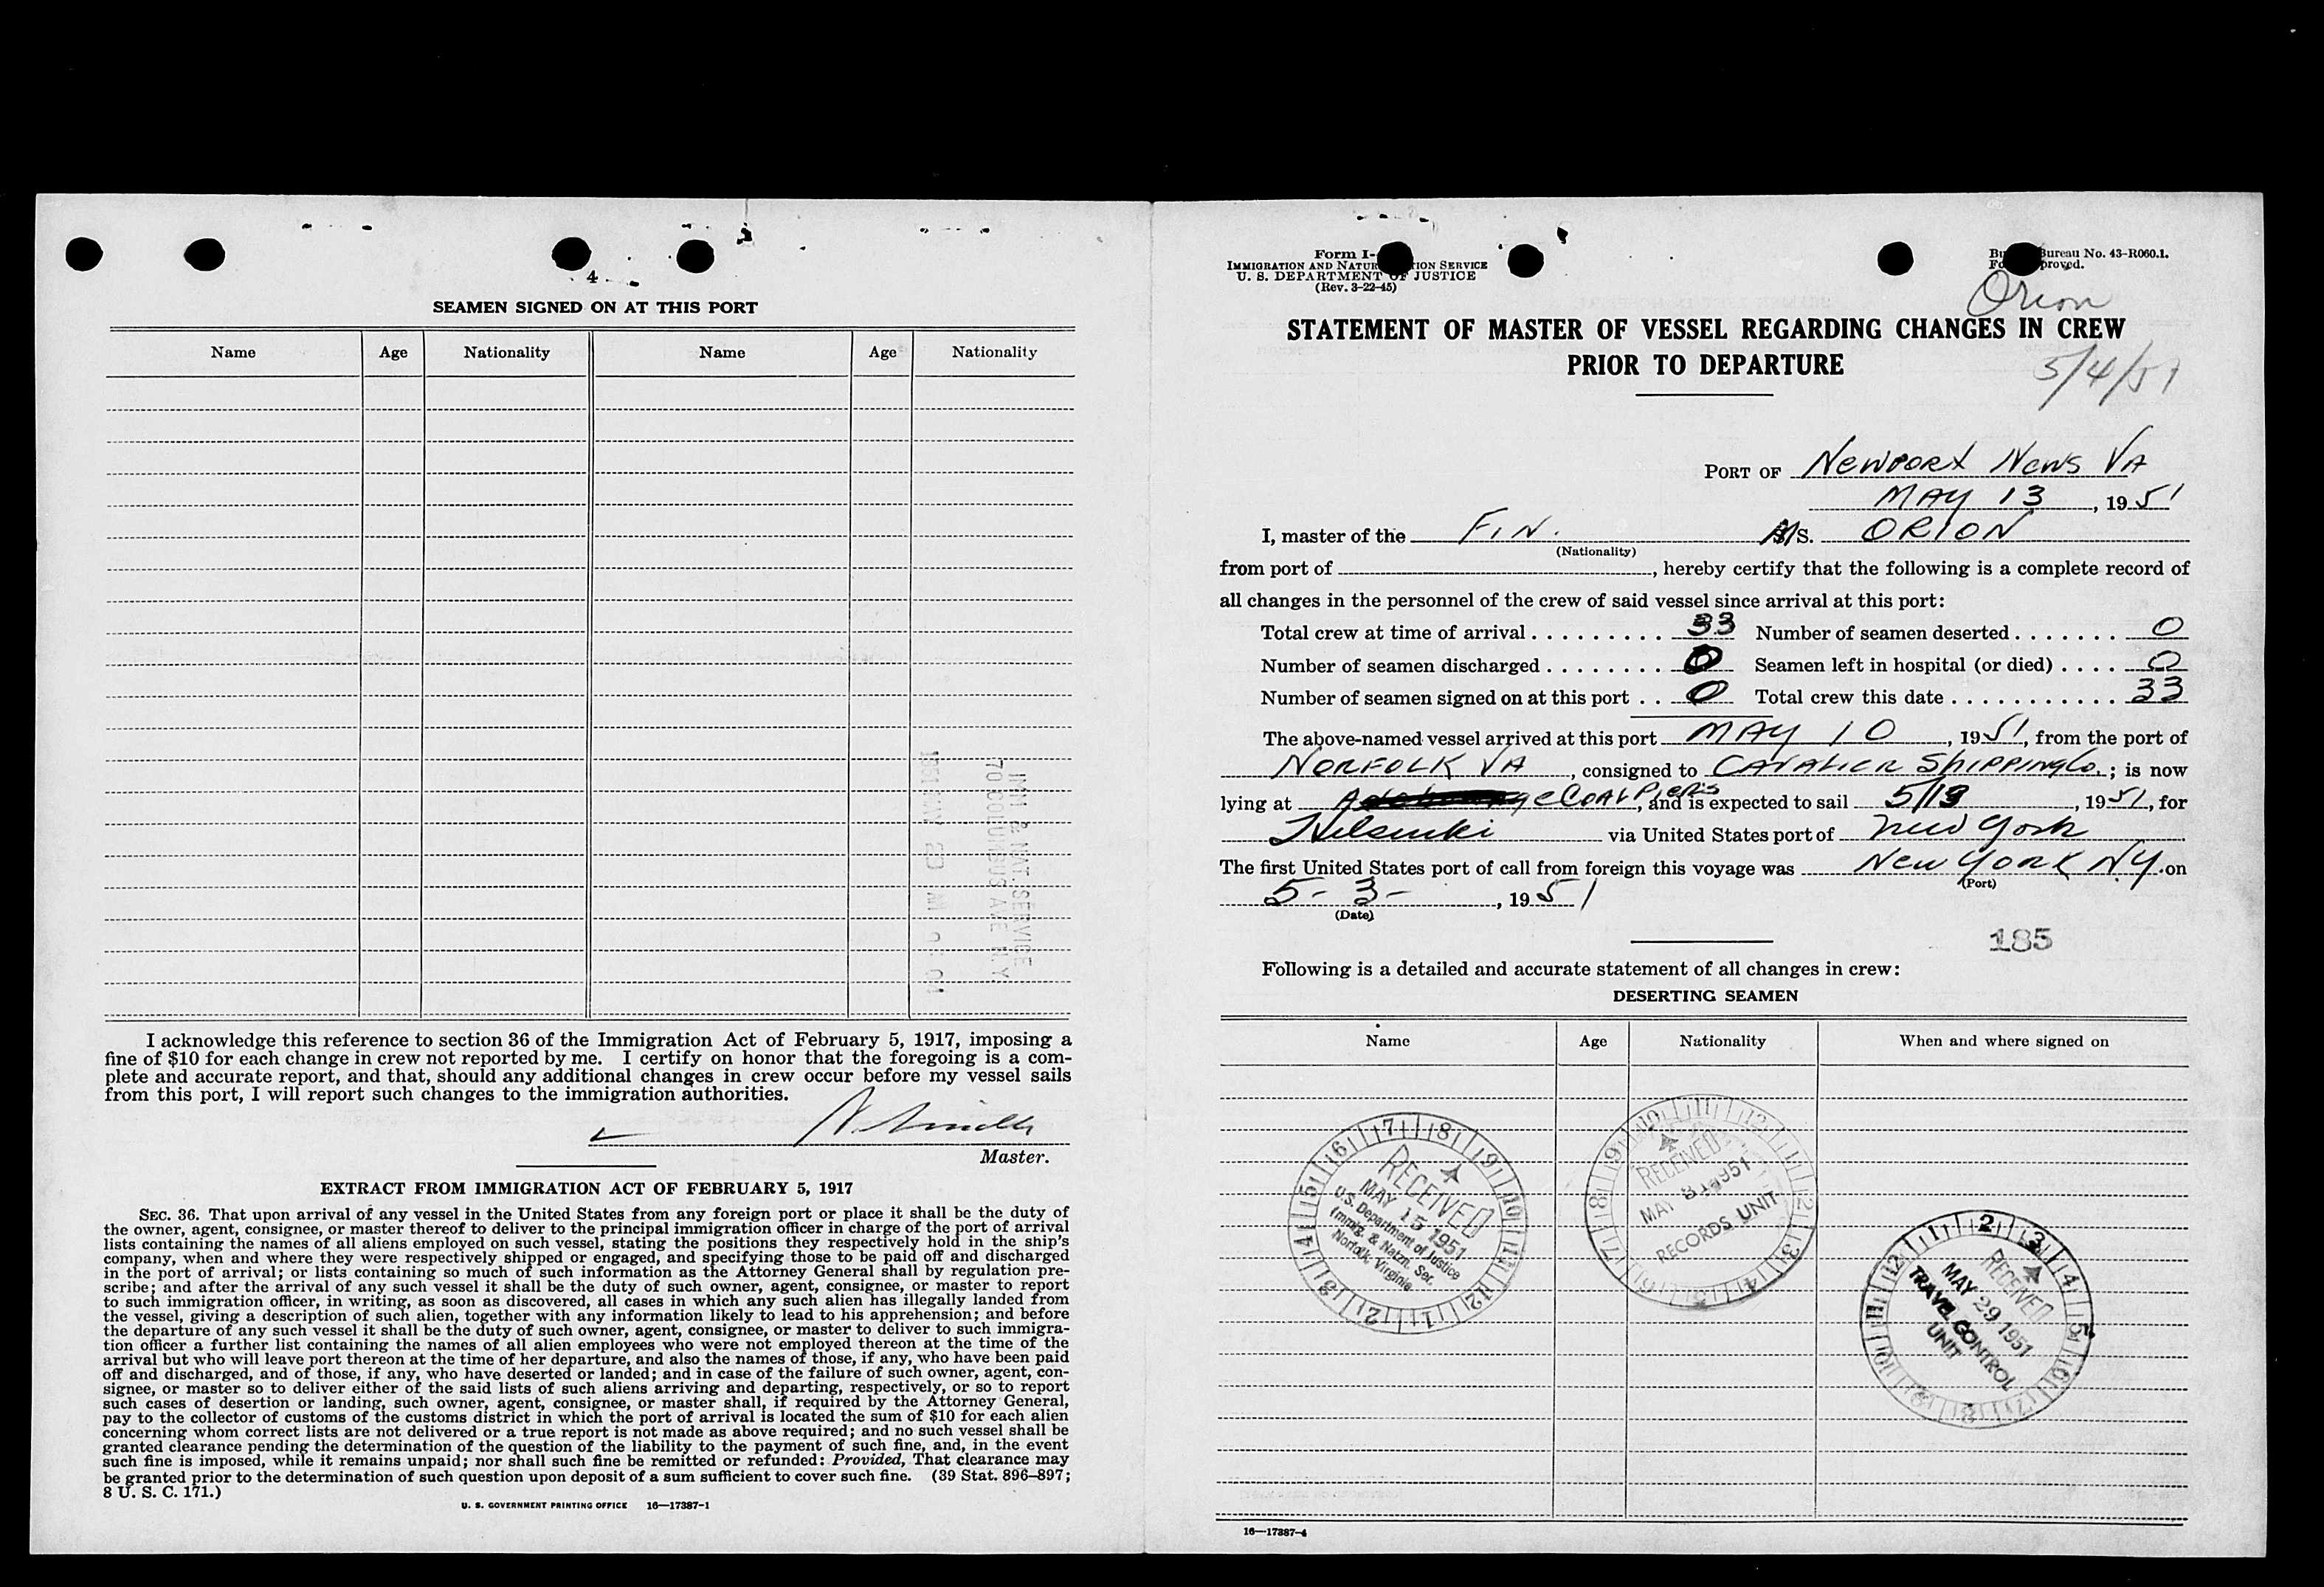 4
SEAMEN SIGNED ON AT THIS PORT
Name Age Nationality Name Age Nationality
IMM. & NAT. SERVICE
70 COLUMBUS AVE N.Y.
I acknowledge this reference to section 36 of the Immigration Act of February 5, 1917, imposing a
fine of $10 for each change in crew not reported by me. I certify on honor that the foregoing is a com-
plete and accurate report, and that, should any additional changes in crew occur before my vessel sails
from this port, I will report such changes to the immigration authorities.
Master.
EXTRACT FROM IMMIGRATION ACT OF FEBRUARY 5, 1917
SEC. 36. That upon arrival of any vessel in the United States from any foreign port or place it shall be the duty of
the owner, agent, consignee, or master thereof to deliver to the principal immigration officer in charge of the port of arrival
lists containing the names of all aliens employed on such vessel, stating the positions they respectively hold in the ship's
company, when and where they were respectively shipped or engaged, and specifying those to be paid off and discharged
in the port of arrival; or lists containing so much of such information as the Attorney General shall by regulation pre-
scribe; and after the arrival of any such vessel it shall be the duty of such owner, agent, consignee, or master to report
to such immigration officer, in writing, as soon as discovered, all cases in which any such alien has illegally landed from
the vessel, giving a description of such alien, together with any information likely to lead to his apprehension; and before
the departure of any such vessel it shall be the duty of such owner, agent, consignee, or master to deliver to such immigra-
tion officer a further list containing the names of all alien employees who were not employed thereon at the time of the
arrival but who will leave port thereon at the time of her departure, and also the names of those, if any, who have been paid
off and discharged, and of those, if any, who have deserted or landed; and in case of the failure of such owner, agent, con-
signee, or master so to deliver either of the said lists of such aliens arriving and departing, respectively, or so to report
such cases of desertion or landing, such owner, agent, consignee, or master shall, if required by the Attorney General,
pay to the collector of customs of the customs district in which the port of arrival is located the sum of $10 for each alien
concerning whom correct lists are not delivered or a true report is not made as above required; and no such vessel shall be
granted clearance pending the determination of the question of the liability to the payment of such fine, and, in the event
such fine is imposed, while it remains unpaid; nor shall such fine be remitted or refunded: Provided, That clearance may
be granted prior to the determination of such question upon deposit of a sum sufficient to cover such fine. (39 Stat. 896–897;
8 U. S. C. 171.)
U. S. GOVERNMENT PRINTING OFFICE 16—17387-1
Form I-
IMMIGRATION AND NATUR ION SERVICE
U. S. DEPARTMENT OF JUSTICE
(Rev. 3-22-45)
Bureau No. 43-R060.1.
proved.
Orion
STATEMENT OF MASTER OF VESSEL REGARDING CHANGES IN CREW
PRIOR TO DEPARTURE
5/4/51
PORT OF Newport News VA
MAY 13, 1951
I, master of the FIN. M/S. ORION
(Nationality)
from port of , hereby certify that the following is a complete record of
all changes in the personnel of the crew of said vessel since arrival at this port:
Total crew at time of arrival . . . . . . . . . 33 Number of seamen deserted . . . . . . . 0
Number of seamen discharged . . . . . . . . 0 Seamen left in hospital (or died) . . . . 0
Number of seamen signed on at this port . . 0 Total crew this date . . . . . . . . . . . 33
The above-named vessel arrived at this port MAY 10, 1951, from the port of
NORFOLK VA, consigned to CAVALIER Shipping Co.; is now
lying at Coal Piers, and is expected to sail 5/13, 1951, for
Helsinki via United States port of New York
The first United States port of call from foreign this voyage was New York N.Y. on
(Port)
5-3-, 1951
(Date)
185
Following is a detailed and accurate statement of all changes in crew:
DESERTING SEAMEN
Name Age Nationality When and where signed on
RECEIVED
MAY 15 1951
U.S. Department of Justice
Immig. & Natzn. Ser.
Norfolk, Virginia
RECEIVED
MAY 1951
RECORDS UNIT
RECEIVED
MAY 29 1951
TRAVEL CONTROL
UNIT
16—17387-4